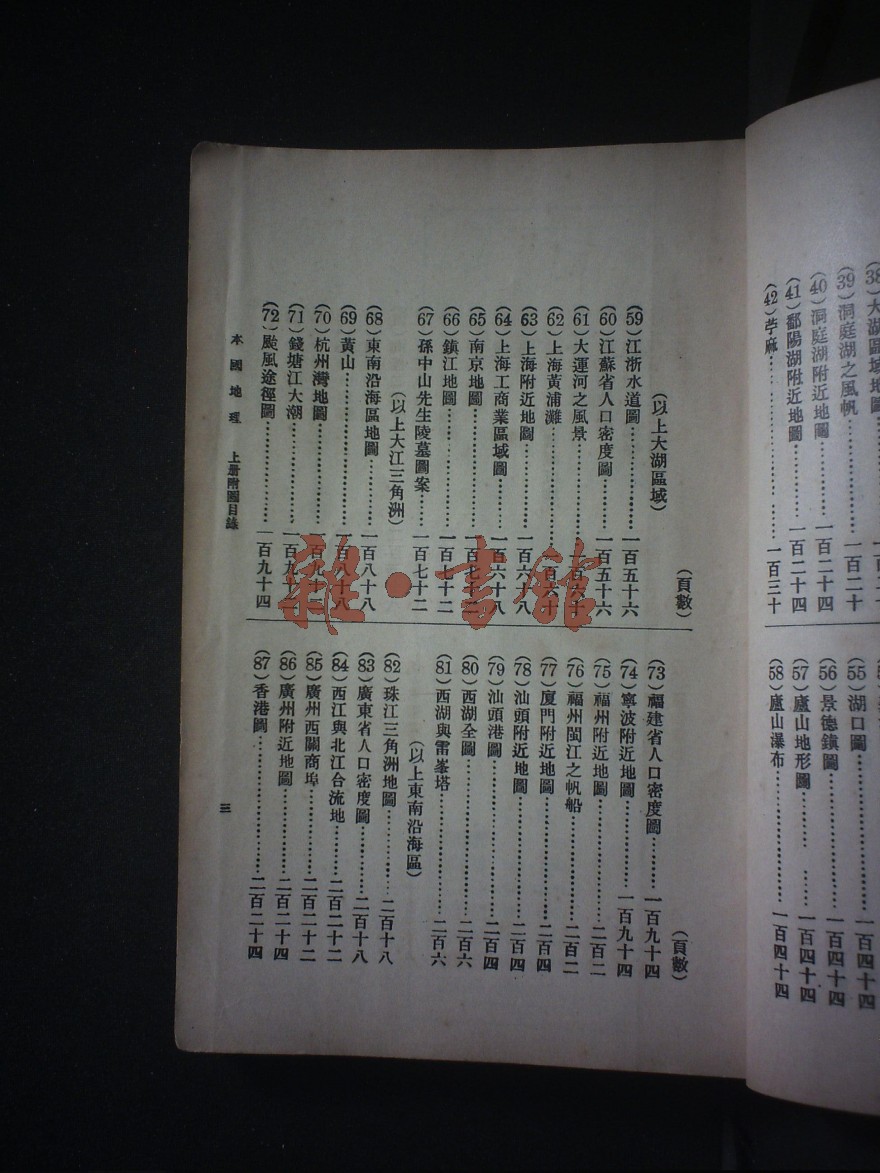 (38)大湖區域地圖
(39)洞庭湖之風帆…………一百二十
(40)洞庭湖附近地圖………一百二十四
(41)鄱陽湖附近地圖………一百二十四
(42)苧麻……………………一百三十
(55)湖口圖…………………一百四十四
(56)景德鎮圖………………一百四十四
(57)廬山地形圖……………一百四十四
(58)廬山瀑布………………一百四十四
(頁數)
(以上大湖區域)
(59)江浙水道圖……………一百五十六
(60)江蘇省人口密度圖……一百五十六
(61)大運河之風景…………一百六十
(62)上海黃浦灘……………一百六十
(63)上海附近地圖…………一百六十八
(64)上海工商業區域圖……一百六十八
(65)南京地圖………………一百七十二
(66)鎮江地圖………………一百七十二
(67)孫中山先生陵墓圖案…一百七十二
(以上大江三角洲)
(68)東南沿海區地圖………一百八十八
(69)黃山……………………一百八十八
(70)杭州灣地圖……………一百九十二
(71)錢塘江大潮……………一百九十二
(72)颱風途徑圖……………一百九十四
(頁數)
(73)福建省人口密度圖……一百九十四
(74)寧波附近地圖…………一百九十四
(75)福州附近地圖…………二百二
(76)福州閩江之帆船………二百二
(77)廈門附近地圖…………二百四
(78)汕頭附近地圖…………二百四
(79)汕頭港圖………………二百四
(80)西湖全圖………………二百六
(81)西湖與雷峯塔…………二百六
(以上東南沿海區)
(82)珠江三角洲地圖………二百十八
(83)廣東省人口密度圖……二百十八
(84)西江與北江合流地……二百二十二
(85)廣州西關商埠…………二百二十二
(86)廣州附近地圖…………二百二十四
(87)香港圖…………………二百二十四
本國地理 上册附圖目錄
三
雜·書館